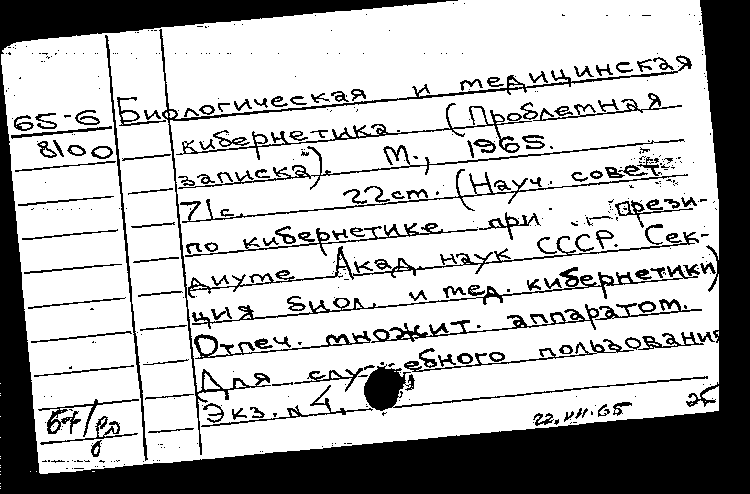 65-6
8100
Биологическая и медицинская
кибернетика. (Проблемная
записка). М., 1965.
71с. 22см. (Науч. совет
по кибернетике при прези-
диуме Акад. наук СССР. Сек-
ция биол. и мед. кибернетики)
Отпеч. множит. аппаратом.
Для служебного пользования
Экз. N 4.
22.VII.65